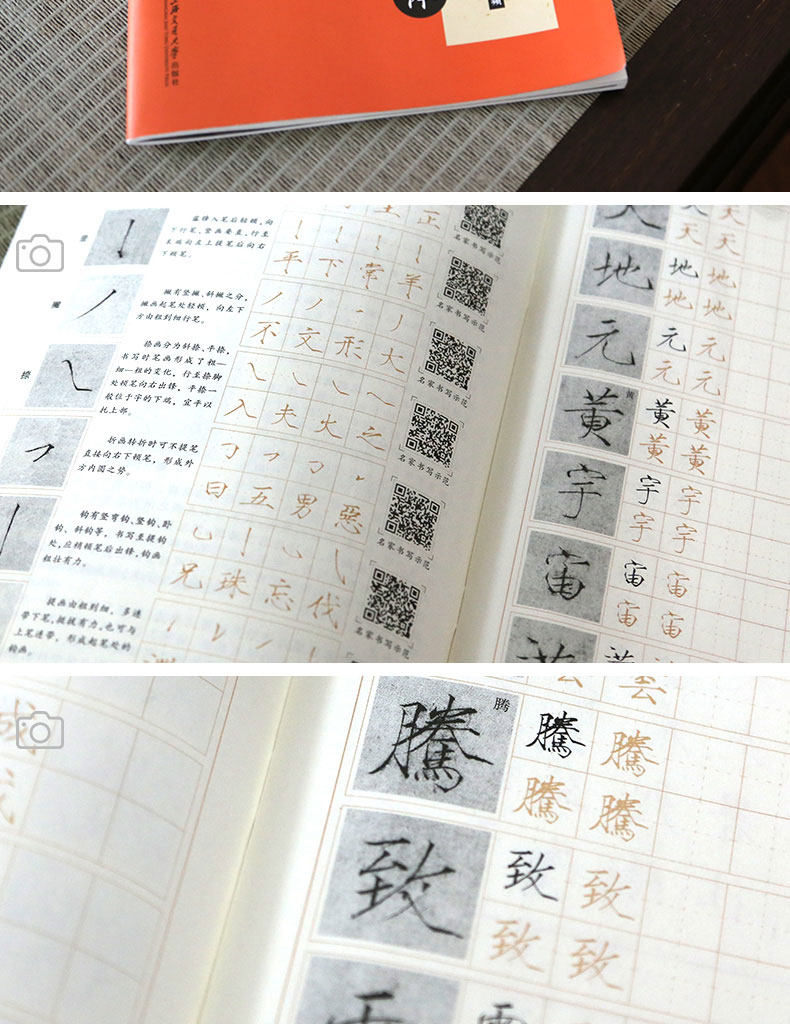 上海交通大学出版社
门
竖
蓝锋入笔后轻顿,向
下行笔、竖画要直,行至
末端向左上提笔后向右
下顿笔。
正
平 下 常 羊
名家书写示范
撇
撇有竖撇、斜撇之分,
撇画起笔处轻顿,向左下
方由粗到细行笔。
不 文 形 大
名家书写示范
捺
捺画分为斜捺、平捺,
书写时笔画形成了粗—
细—粗的变化,行至捺脚
处顿笔向右出锋,平捺一
般位于字的下端,宜平以
托上部。
入 夫 火 之
名家书写示范
折画转折时可不提笔
直接向右下顿笔,形成外
方内圆之势。
曰 五 男 惡
名家书写示范
钩有竖弯钩、竖钩、卧
钩、斜钩等,书写至提钩
处,应稍顿笔后出锋,钩画
粗壮有力。
兄 珠 忘 伐
名家书写示范
提画由粗到细,多连
带下笔,挺拔有力,也可与
上笔连带,形成起笔处的
转画。
名家书写示范
天 天 天
天 天
地 地 地
地 地
元 元 元
元 元
黃 黄 黃 黃
黃 黃
宇 宇 宇
宇 宇
宙 宙 宙
宙 宙
黃
雲 雲
騰 腾 騰 騰
騰 騰
致 致 致
致 致
雨
成